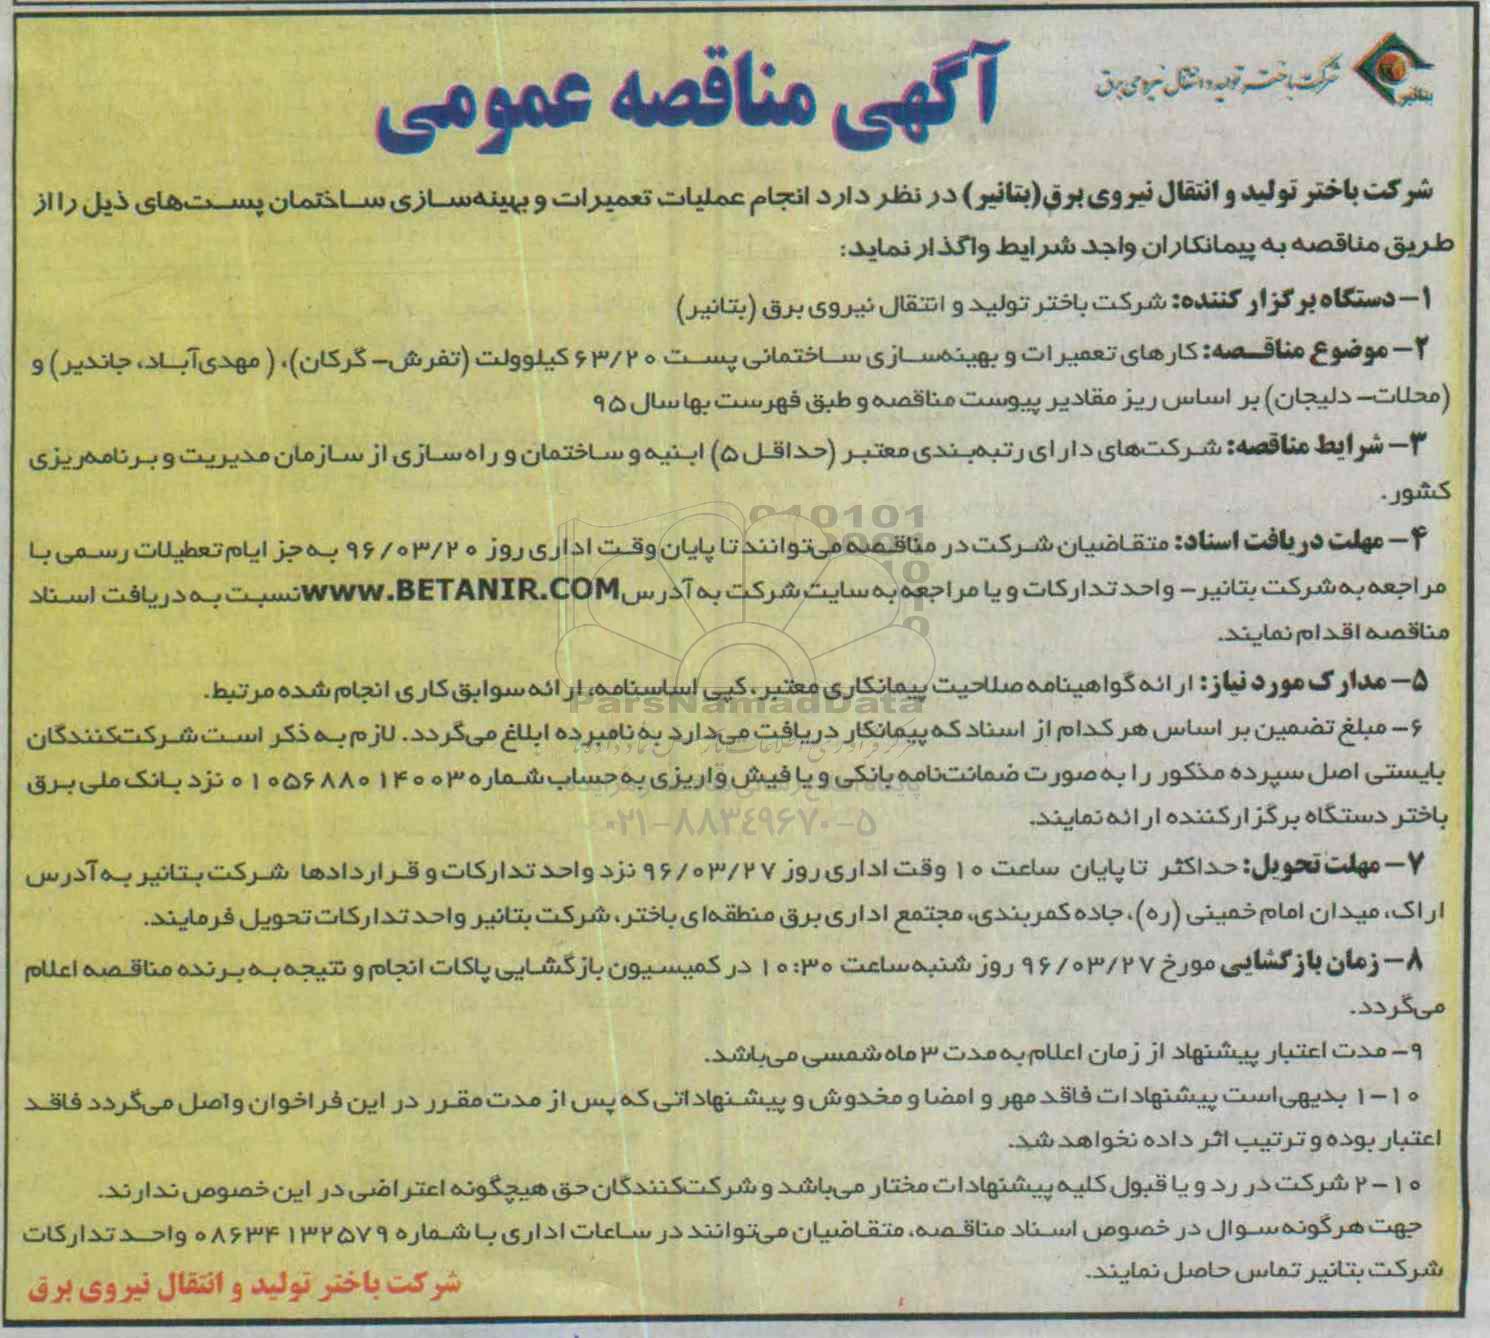 شرکت باختر تولید و انتقال نیروی برق
بتانیر
آگهی مناقصه عمومی
شرکت باختر تولید و انتقال نیروی برق (بتانیر) در نظر دارد انجام عملیات تعمیرات و بهینه‌سازی ساختمان پست‌های ذیل را از
طریق مناقصه به پیمانکاران واجد شرایط واگذار نماید:
۱- دستگاه برگزار کننده: شرکت باختر تولید و انتقال نیروی برق (بتانیر)
۲- موضوع مناقصه: کارهای تعمیرات و بهینه‌سازی ساختمانی پست ۶۳/۲۰ کیلوولت (تفرش- گرکان)، (مهدی‌آباد، جاندیر) و
(محلات- دلیجان) بر اساس ریز مقادیر پیوست مناقصه و طبق فهرست بها سال ۹۵
۳- شرایط مناقصه: شرکت‌های دارای رتبه‌بندی معتبر (حداقل ۵) ابنیه و ساختمان و راه سازی از سازمان مدیریت و برنامه‌ریزی
کشور.
۴- مهلت دریافت اسناد: متقاضیان شرکت در مناقصه می‌توانند تا پایان وقت اداری روز ۹۶/۰۳/۲۰ به جز ایام تعطیلات رسمی با
مراجعه به شرکت بتانیر- واحد تدارکات و یا مراجعه به سایت شرکت به آدرس www.BETANIR.COM نسبت به دریافت اسناد
مناقصه اقدام نمایند.
۵- مدارک مورد نیاز: ارائه گواهینامه صلاحیت پیمانکاری معتبر، کپی اساسنامه، ارائه سوابق کاری انجام شده مرتبط.
ParsNamadData
۶- مبلغ تضمین بر اساس هر کدام از اسناد که پیمانکار دریافت می‌دارد به نامبرده ابلاغ می‌گردد. لازم به ذکر است شرکت‌کنندگان
بایستی اصل سپرده مذکور را به صورت ضمانت‌نامه بانکی و یا فیش واریزی به حساب شماره ۰۱۰۵۶۸۸۰۱۴۰۰۳ نزد بانک ملی برق
باختر دستگاه برگزارکننده ارائه نمایند.
۰۲۱-۸۸۳۴۹۶۷۰-۵
۷- مهلت تحویل: حداکثر تا پایان ساعت ۱۰ وقت اداری روز ۹۶/۰۳/۲۷ نزد واحد تدارکات و قراردادها شرکت بتانیر به آدرس
اراک، میدان امام خمینی (ره)، جاده کمربندی، مجتمع اداری برق منطقه‌ای باختر، شرکت بتانیر واحد تدارکات تحویل فرمایند.
۸- زمان بازگشایی مورخ ۹۶/۰۳/۲۷ روز شنبه ساعت ۱۰:۳۰ در کمیسیون بازگشایی پاکات انجام و نتیجه به برنده مناقصه اعلام
می‌گردد.
۹- مدت اعتبار پیشنهاد از زمان اعلام به مدت ۳ ماه شمسی می‌باشد.
۱۰-۱ بدیهی است پیشنهادات فاقد مهر و امضا و مخدوش و پیشنهاداتی که پس از مدت مقرر در این فراخوان واصل می‌گردد فاقد
اعتبار بوده و ترتیب اثر داده نخواهد شد.
۱۰-۲ شرکت در رد و یا قبول کلیه پیشنهادات مختار می‌باشد و شرکت‌کنندگان حق هیچگونه اعتراضی در این خصوص ندارند.
جهت هرگونه سوال در خصوص اسناد مناقصه، متقاضیان می‌توانند در ساعات اداری با شماره ۰۸۶۳۴۱۳۲۵۷۹ واحد تدارکات
شرکت بتانیر تماس حاصل نمایند.
شرکت باختر تولید و انتقال نیروی برق